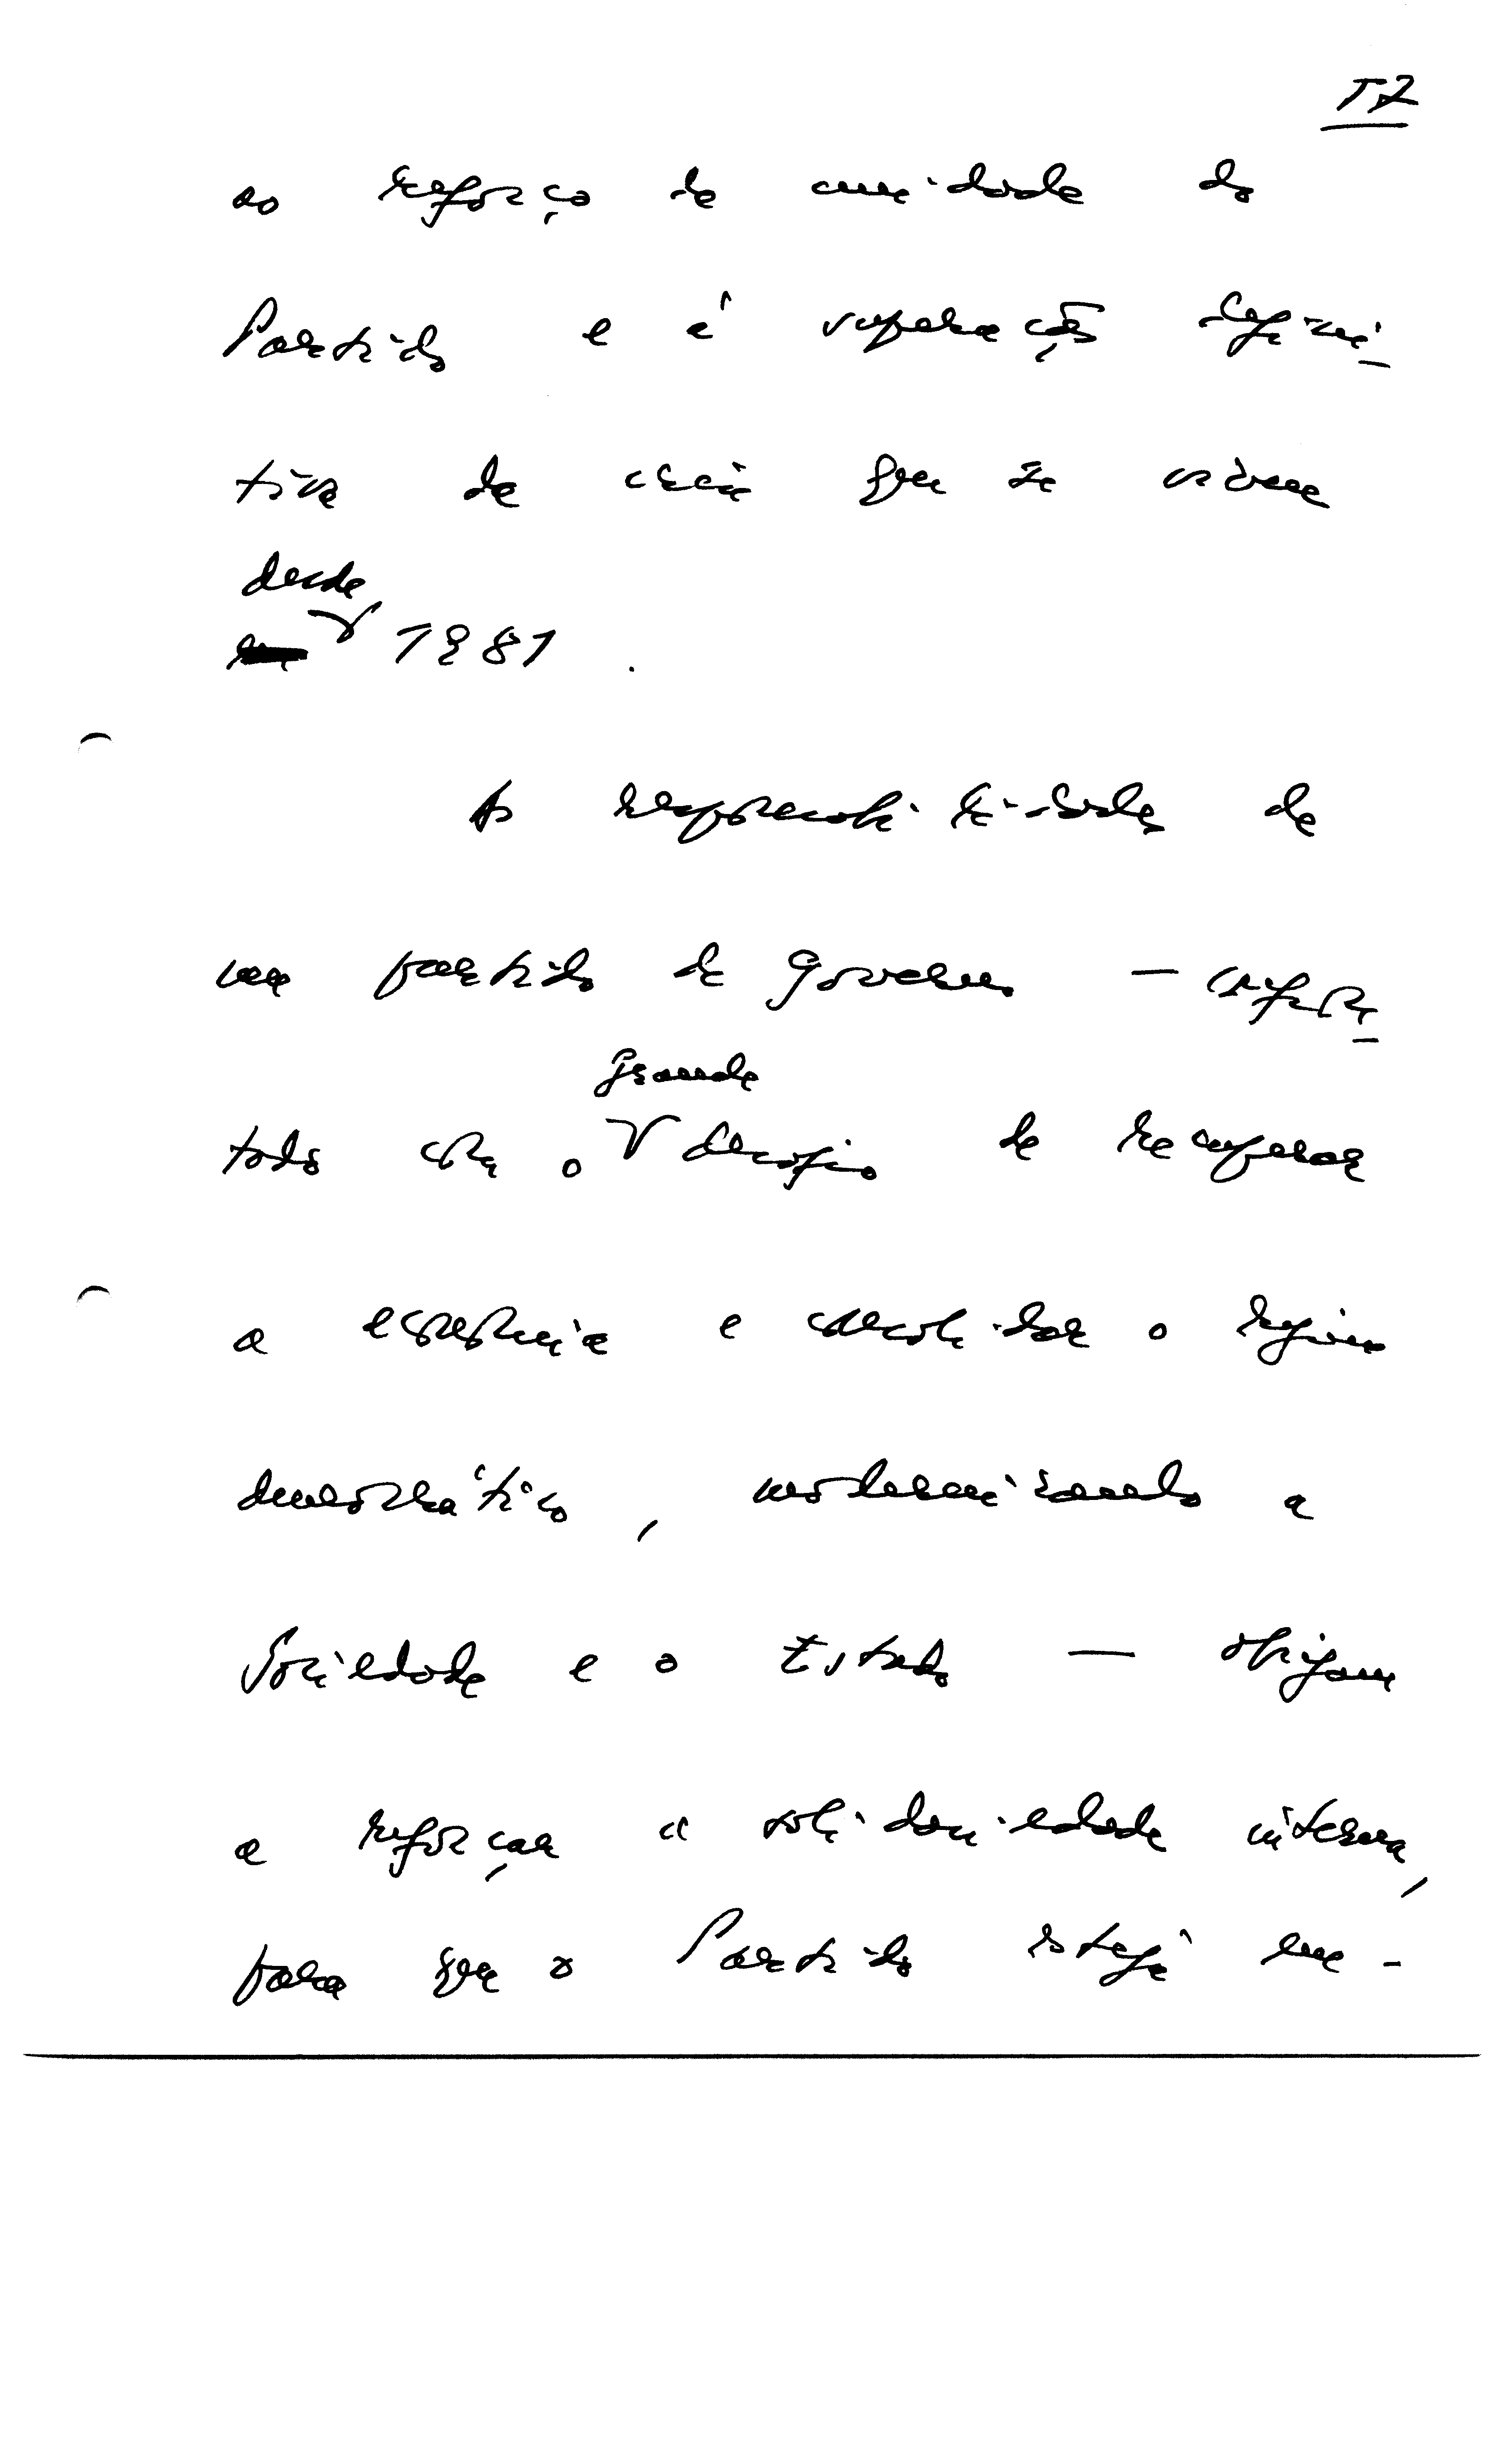 ao reforço da unidade do
Partido e à superação defini-
tiva da crise que se
desde
1981.
As responsabilidades de
um partido de Governo — confron-
grande
tado com o desafio de recuperar
a economia e consolidar o regime
democrático, modernizando a
Sociedade e o Estado — obrigam
a reforçar a solidariedade interna,
para que o Partido esteja em-